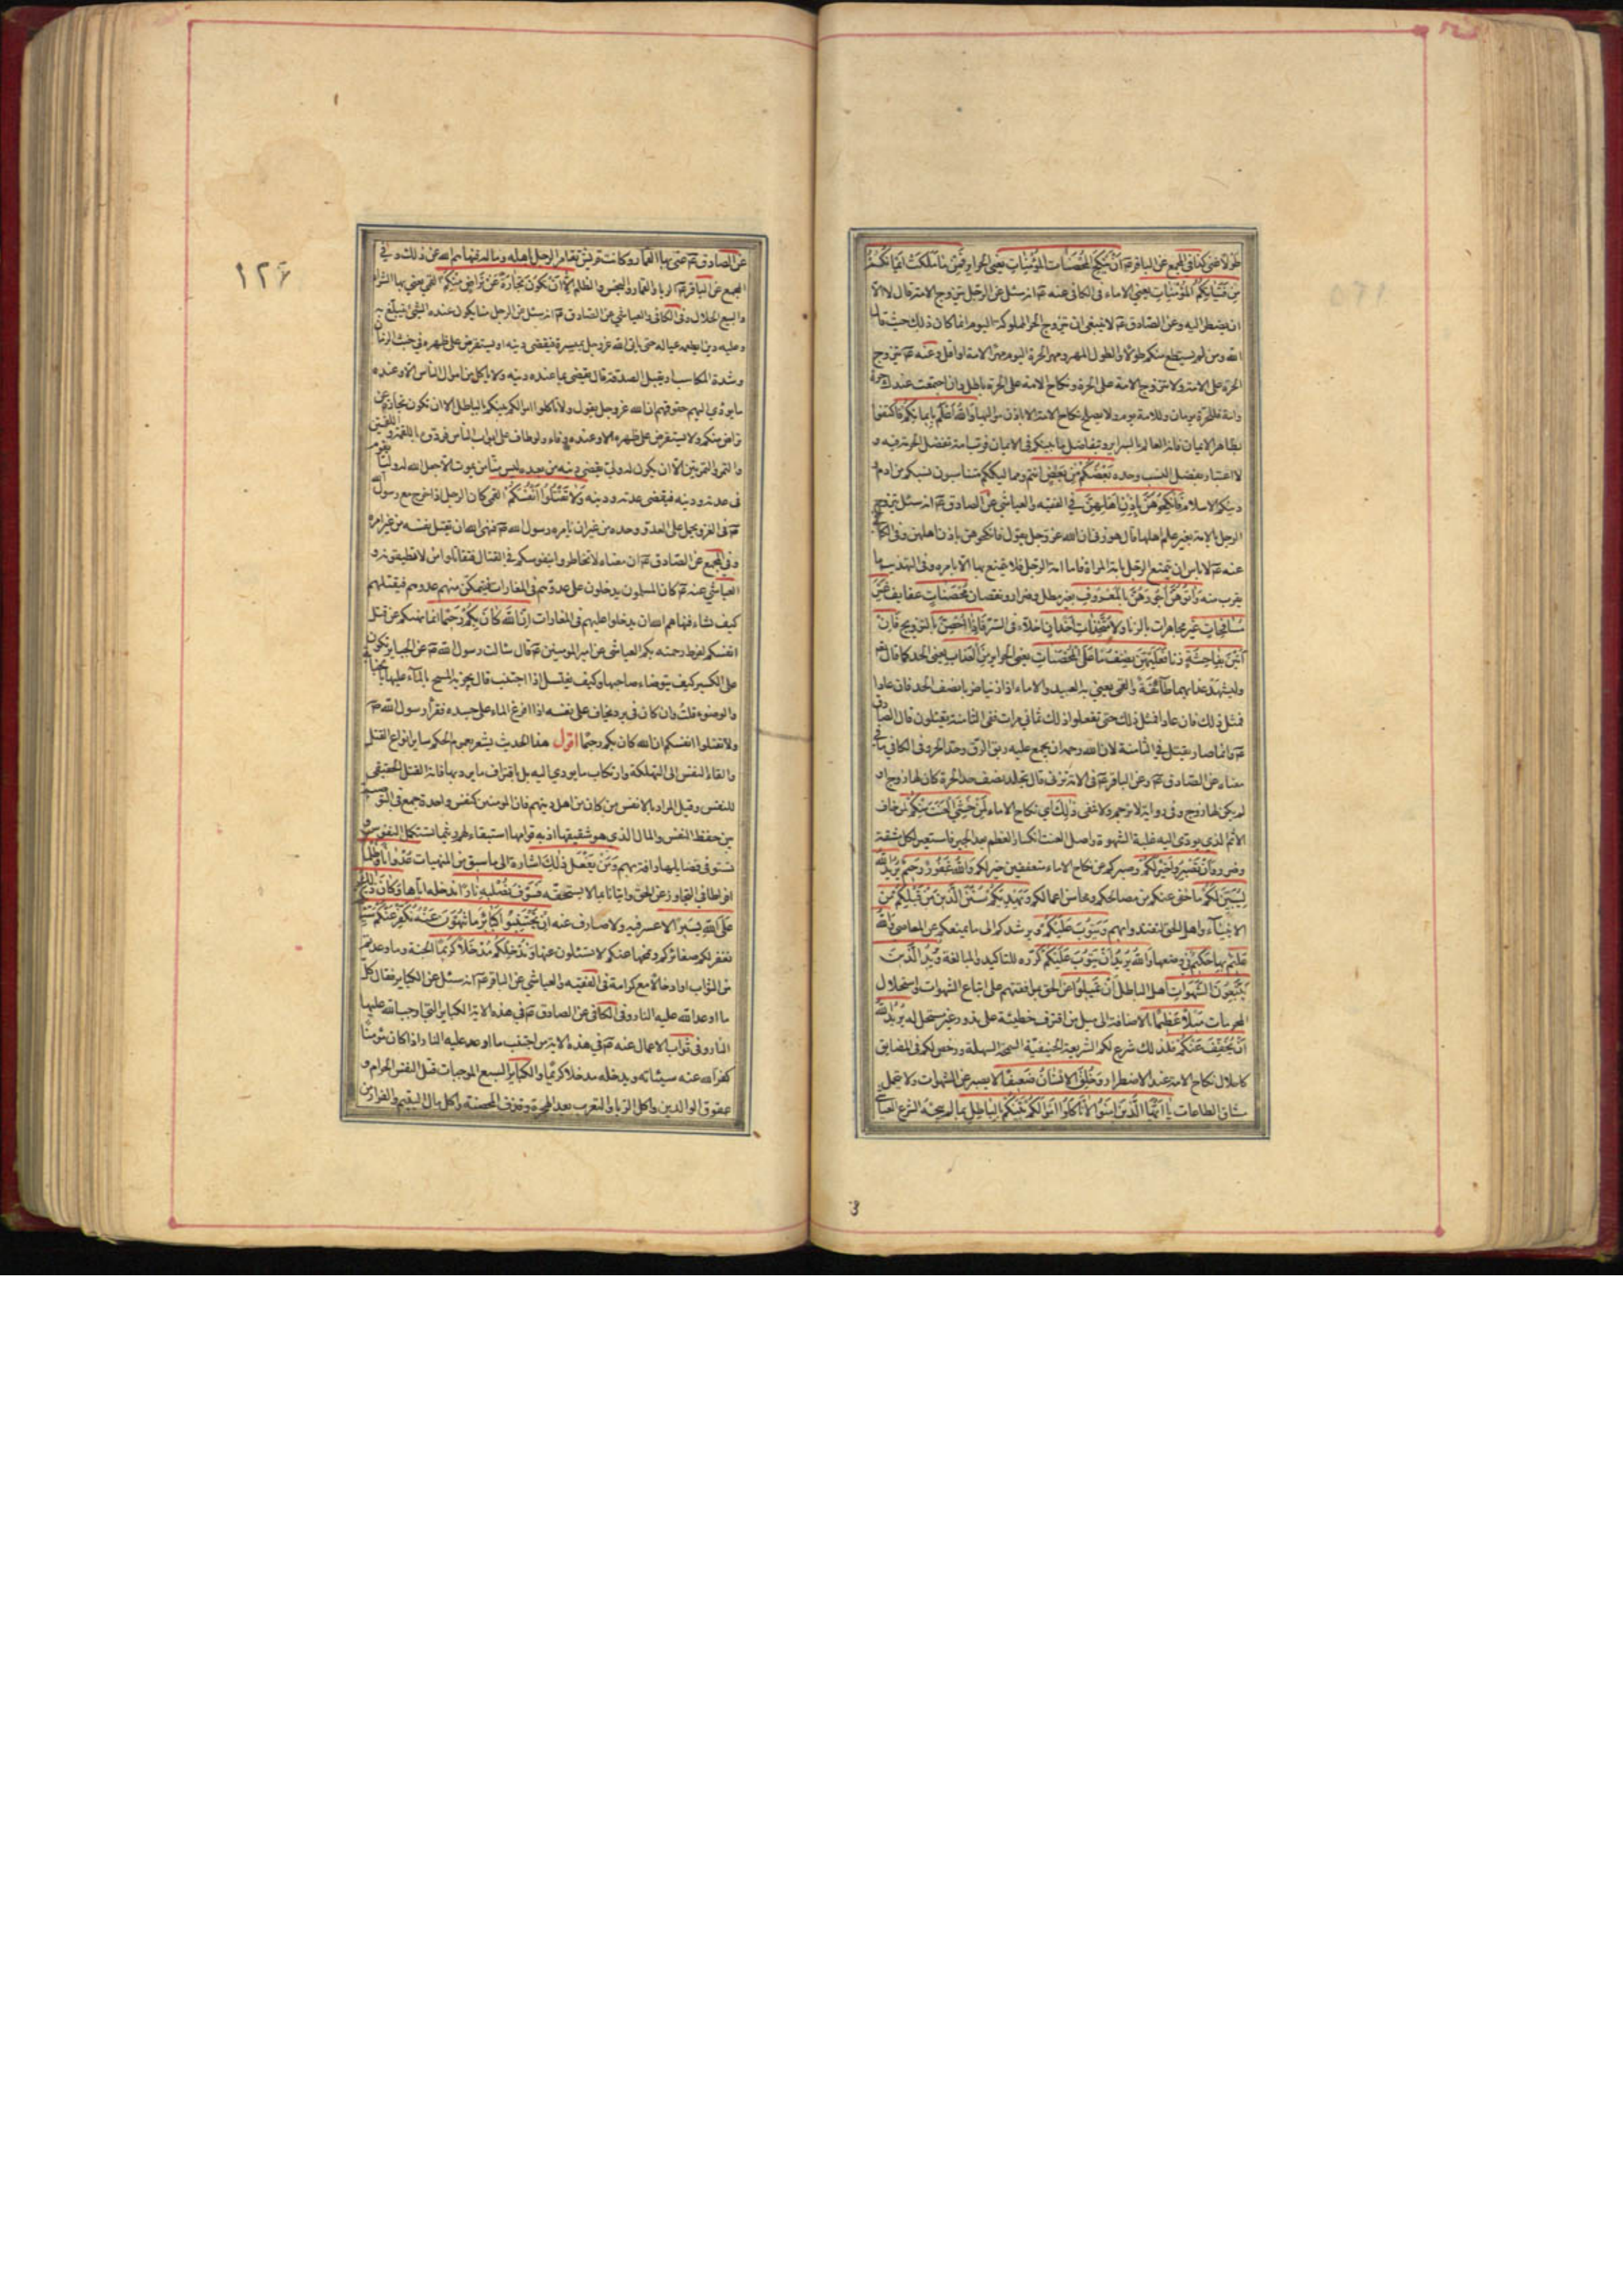 طولا غنى كذا في المجمع عن الباقر عم أَنْ يَنْكِحَ الْمُحْصَنَاتِ الْمُؤْمِنَاتِ يعنى الحراير فَمِنْ مَا مَلَكَتْ أَيْمَانُكُمْ
مِنْ فَتَيَاتِكُمُ الْمُؤْمِنَاتِ يعنى الاماء فى الكافى عنه عم انه سئل عن الرجل يتزوج الامة قال لا الا
ان يضطر اليه وعن الصادق عم لا ينبغى ان يتزوج الحر المملوكة اليوم انما كان ذلك حيث قال
الله ومن لم يستطع منكم طولا والطول المهر ومهر الحرة اليوم مهر الامة او اقل وعنه عم يتزوج
الحرة على الامة ولا يتزوج الامة على الحرة ونكاح الامة على الحرة باطل وان اجتمعت عندك حرة
وامة فللحرة يومان وللامة يوم ولا يصلح نكاح الامة الا باذن مواليها وَاللهُ أَعْلَمُ بِإِيمَانِكُمْ فاكتفوا
بظاهر الايمان فانه العالم بالسراير وبتفاضل ما بينكم فى الايمان فرب امة تفضل الحرة فيه و
لا اعتبار بفضل النسب وحده بَعْضُكُمْ مِنْ بَعْضٍ انتم ومماليككم متناسبون نسبكم من ادم و
دينكم الاسلام فَانْكِحُوهُنَّ بِإِذْنِ أَهْلِهِنَّ في الفقيه والعياشي عن الصادق عم انه سئل يتزوج
الرجل بالامة بغير علم اهلها قال هو زنى ان الله عز وجل يقول فانكحوهن باذن اهلهن وفى الكافي
عنه عم لا باس ان يتمتع الرجل بامة المراة فاما امة الرجل فلا يتمتع بها الا بامره وفى التهذيب ما
يقرب منه وَآتُوهُنَّ أُجُورَهُنَّ بِالْمَعْرُوفِ بغير مطل وضرار ونقصان مُحْصَنَاتٍ عفايف غَيْرَ
مُسَافِحَاتٍ غير مجاهرات بالزنا وَلَا مُتَّخِذَاتِ أَخْدَانٍ اخلاء فى السر فَإِذَا أُحْصِنَّ بالتزويج فَإِنْ
أَتَيْنَ بِفَاحِشَةٍ زنا فَعَلَيْهِنَّ نِصْفُ مَا عَلَى الْمُحْصَنَاتِ يعنى الحراير مِنَ الْعَذَابِ يعنى الحد كما قال تع
وليشهد عذابهما طائفة والقمي يعني به العبيد والاماء اذا زنيا ضربا نصف الحد فان عادا
فمثل ذلك فان عادا فمثل ذلك حتى تفعلوا ذلك ثمانى مرات ففى الثامنة يقتلون قال الصادق
عم وانما صار يقتل في الثامنة لان الله رحمه ان يجمع عليه ربق الرق وحد الحر وفى الكافي ما في
معناه عن الصادق عم وعن الباقر عم فى الامة تزنى قال تجلد نصف حد الحرة كان لها زوج او
لم يكن لها زوج وفى رواية لا ترجم ولا تنفى ذَلِكَ اي نكاح الاماء لِمَنْ خَشِيَ الْعَنَتَ مِنْكُمْ لمن خاف
الاثم الذي يودى اليه غلبة الشهوة واصل العنت انكسار العظم بعد الجبر فاستعير لكل مشقة
وضرر وَأَنْ تَصْبِرُوا خَيْرٌ لَكُمْ وصبركم عن نكاح الاماء متعففين خير لكم وَاللهُ غَفُورٌ رَحِيمٌ يُرِيدُ اللهُ
لِيُبَيِّنَ لَكُمْ ما خفى عنكم من مصالحكم ومحاسن اعمالكم وَيَهْدِيَكُمْ سُنَنَ الَّذِينَ مِنْ قَبْلِكُمْ من
الانبياء واهل الحق لتقتدوا بهم وَيَتُوبَ عَلَيْكُمْ ويرشدكم الى ما يمنعكم عن المعاصى وَاللهُ
عَلِيمٌ بها حَكِيمٌ فى وضعها وَاللهُ يُرِيدُ أَنْ يَتُوبَ عَلَيْكُمْ كرره للتاكيد والمبالغة وَيُرِيدُ الَّذِينَ
يَتَّبِعُونَ الشَّهَوَاتِ اهل الباطل أَنْ تَمِيلُوا عن الحق بموافقتهم على اتباع الشهوات واستحلال
المحرمات مَيْلًا عَظِيمًا بالاضافة الى ميل من اقترف خطيئة على ندور غير مستحل له يُرِيدُ اللهُ
أَنْ يُخَفِّفَ عَنْكُمْ فلذلك شرع لكم الشريعة الحنيفية السمحة السهلة ورخص لكم فى المضايق
كاحلال نكاح الامة عند الاضطرار وَخُلِقَ الْإِنْسَانُ ضَعِيفًا لا يصبر عن الشهوات ولا يتحمل
مشاق الطاعات يَا أَيُّهَا الَّذِينَ آمَنُوا لَا تَأْكُلُوا أَمْوَالَكُمْ بَيْنَكُمْ بِالْبَاطِلِ بما لم يبحه الشرع العياشي
١٢٦
عن الصادق عم عنى بها القمار وكانت قريش تقامر الرجل باهله وماله فنهاهم الله عن ذلك وفي
المجمع عن الباقر عم الربا والقمار والبخس والظلم إِلَّا أَنْ تَكُونَ تِجَارَةً عَنْ تَرَاضٍ مِنْكُمْ القمي يعني بها الشراء
والبيع الحلال وفى الكافى والعياشي عن الصادق عم انه سئل عن الرجل منا يكون عنده الشئ يتبلغ به
وعليه دين ايطعمه عياله حتى ياتى الله عز وجل بميسرة فيقضى دينه او يستقرض على ظهره في خبث الزمان
وشدة المكاسب او يقبل الصدقة قال يقضى بما عنده دينه ولا ياكل من اموال الناس الا وعنده
ما يودي اليهم حقوقهم ان الله عز وجل يقول ولا تاكلوا اموالكم بينكم بالباطل الا ان تكون تجارة عن
تراض منكم ولا يستقرض على ظهره الا وعنده وفاء ولو طاف على ابواب الناس فردوه باللقمة واللقمتين
والتمرة والتمرتين الا ان يكون له ولي يقضى دينه من بعده ليس منا من يموت الا جعل الله له وليا يقوم
فى عدته ودينه فيقضى عدته ودينه وَلَا تَقْتُلُوا أَنْفُسَكُمْ القمي كان الرجل اذا خرج مع رسول الله
عم فى الغزو يحمل على العدو وحده من غير ان يامره رسول الله عم فنهى الله ان يقتل نفسه من غير امره
وفى المجمع عن الصادق عم ان معناه لا تخاطروا بنفوسكم في القتال فتقاتلوا من لا تطيقونه و
العياشي عنه عم كان المسلمون يدخلون على عدوهم فى المغارات فيتمكن منهم عدوهم فيقتلهم
كيف شاء فنهاهم الله ان يدخلوا عليهم فى المغارات إِنَّ اللهَ كَانَ بِكُمْ رَحِيمًا انما نهيكم عن قتل
انفسكم لفرط رحمته بكم العياشي عن امير المومنين عم قال سالت رسول الله عم عن الجباير تكون
على الكسير كيف يتوضاء صاحبها وكيف يغتسل اذا اجنب قال يجزيه المسح بالماء عليها في الجنابة
والوضوء قلت وان كان فى برد يخاف على نفسه اذا افرغ الماء على جسده فقرأ رسول الله عم
ولا تقتلوا انفسكم ان الله كان بكم رحيما اقول هذا الحديث يشعر بعموم الحكم ساير انواع القتل
والقاء النفس الى التهلكة وارتكاب ما يودي اليه بل اقتراف ما يرديها فانه القتل الحقيقى
للنفس وقيل المراد بالانفس من كان من اهل دينهم فان المومنين كنفس واحدة جمع فى التوصية
بين حفظ النفس والمال الذي هو شقيقها اذ به قوامها استبقاء لهم ريثما تستكمل النفوس و
تستوفى فضايلها رافة بهم وَمَنْ يَفْعَلْ ذَلِكَ اشارة الى ما سبق من المنهيات عُدْوَانًا وَظُلْمًا
افراطا في التجاوز عن الحق واتيانا بما لا يستحقه فَسَوْفَ نُصْلِيهِ نَارًا ندخله اياها وَكَانَ ذَلِكَ
عَلَى اللهِ يَسِيرًا لا عسر فيه ولا صارف عنه إِنْ تَجْتَنِبُوا كَبَائِرَ مَا تُنْهَوْنَ عَنْهُ نُكَفِّرْ عَنْكُمْ سَيِّئَاتِكُمْ
نغفر لكم صغائركم ونمحها عنكم لا تسئلون عنها وَنُدْخِلْكُمْ مُدْخَلًا كَرِيمًا الجنة وما وعدتم
من الثواب او ادخالا مع كرامة فى الفقيه والعياشي عن الباقر عم انه سئل عن الكباير فقال كل
ما اوعد الله عليه النار وفى الكافى عن الصادق عم في هذه الاية الكباير التى اوجب الله عليها
النار وفى ثواب الاعمال عنه عم في هذه الاية من اجتنب ما اوعد عليه النار اذا كان مؤمنا
كفر الله عنه سيئاته ويدخله مدخلا كريما والكباير السبع الموجبات قتل النفس الحرام و
عقوق الوالدين واكل الربا والتعرب بعد الهجرة وقذف المحصنة واكل مال اليتيم والفرار من